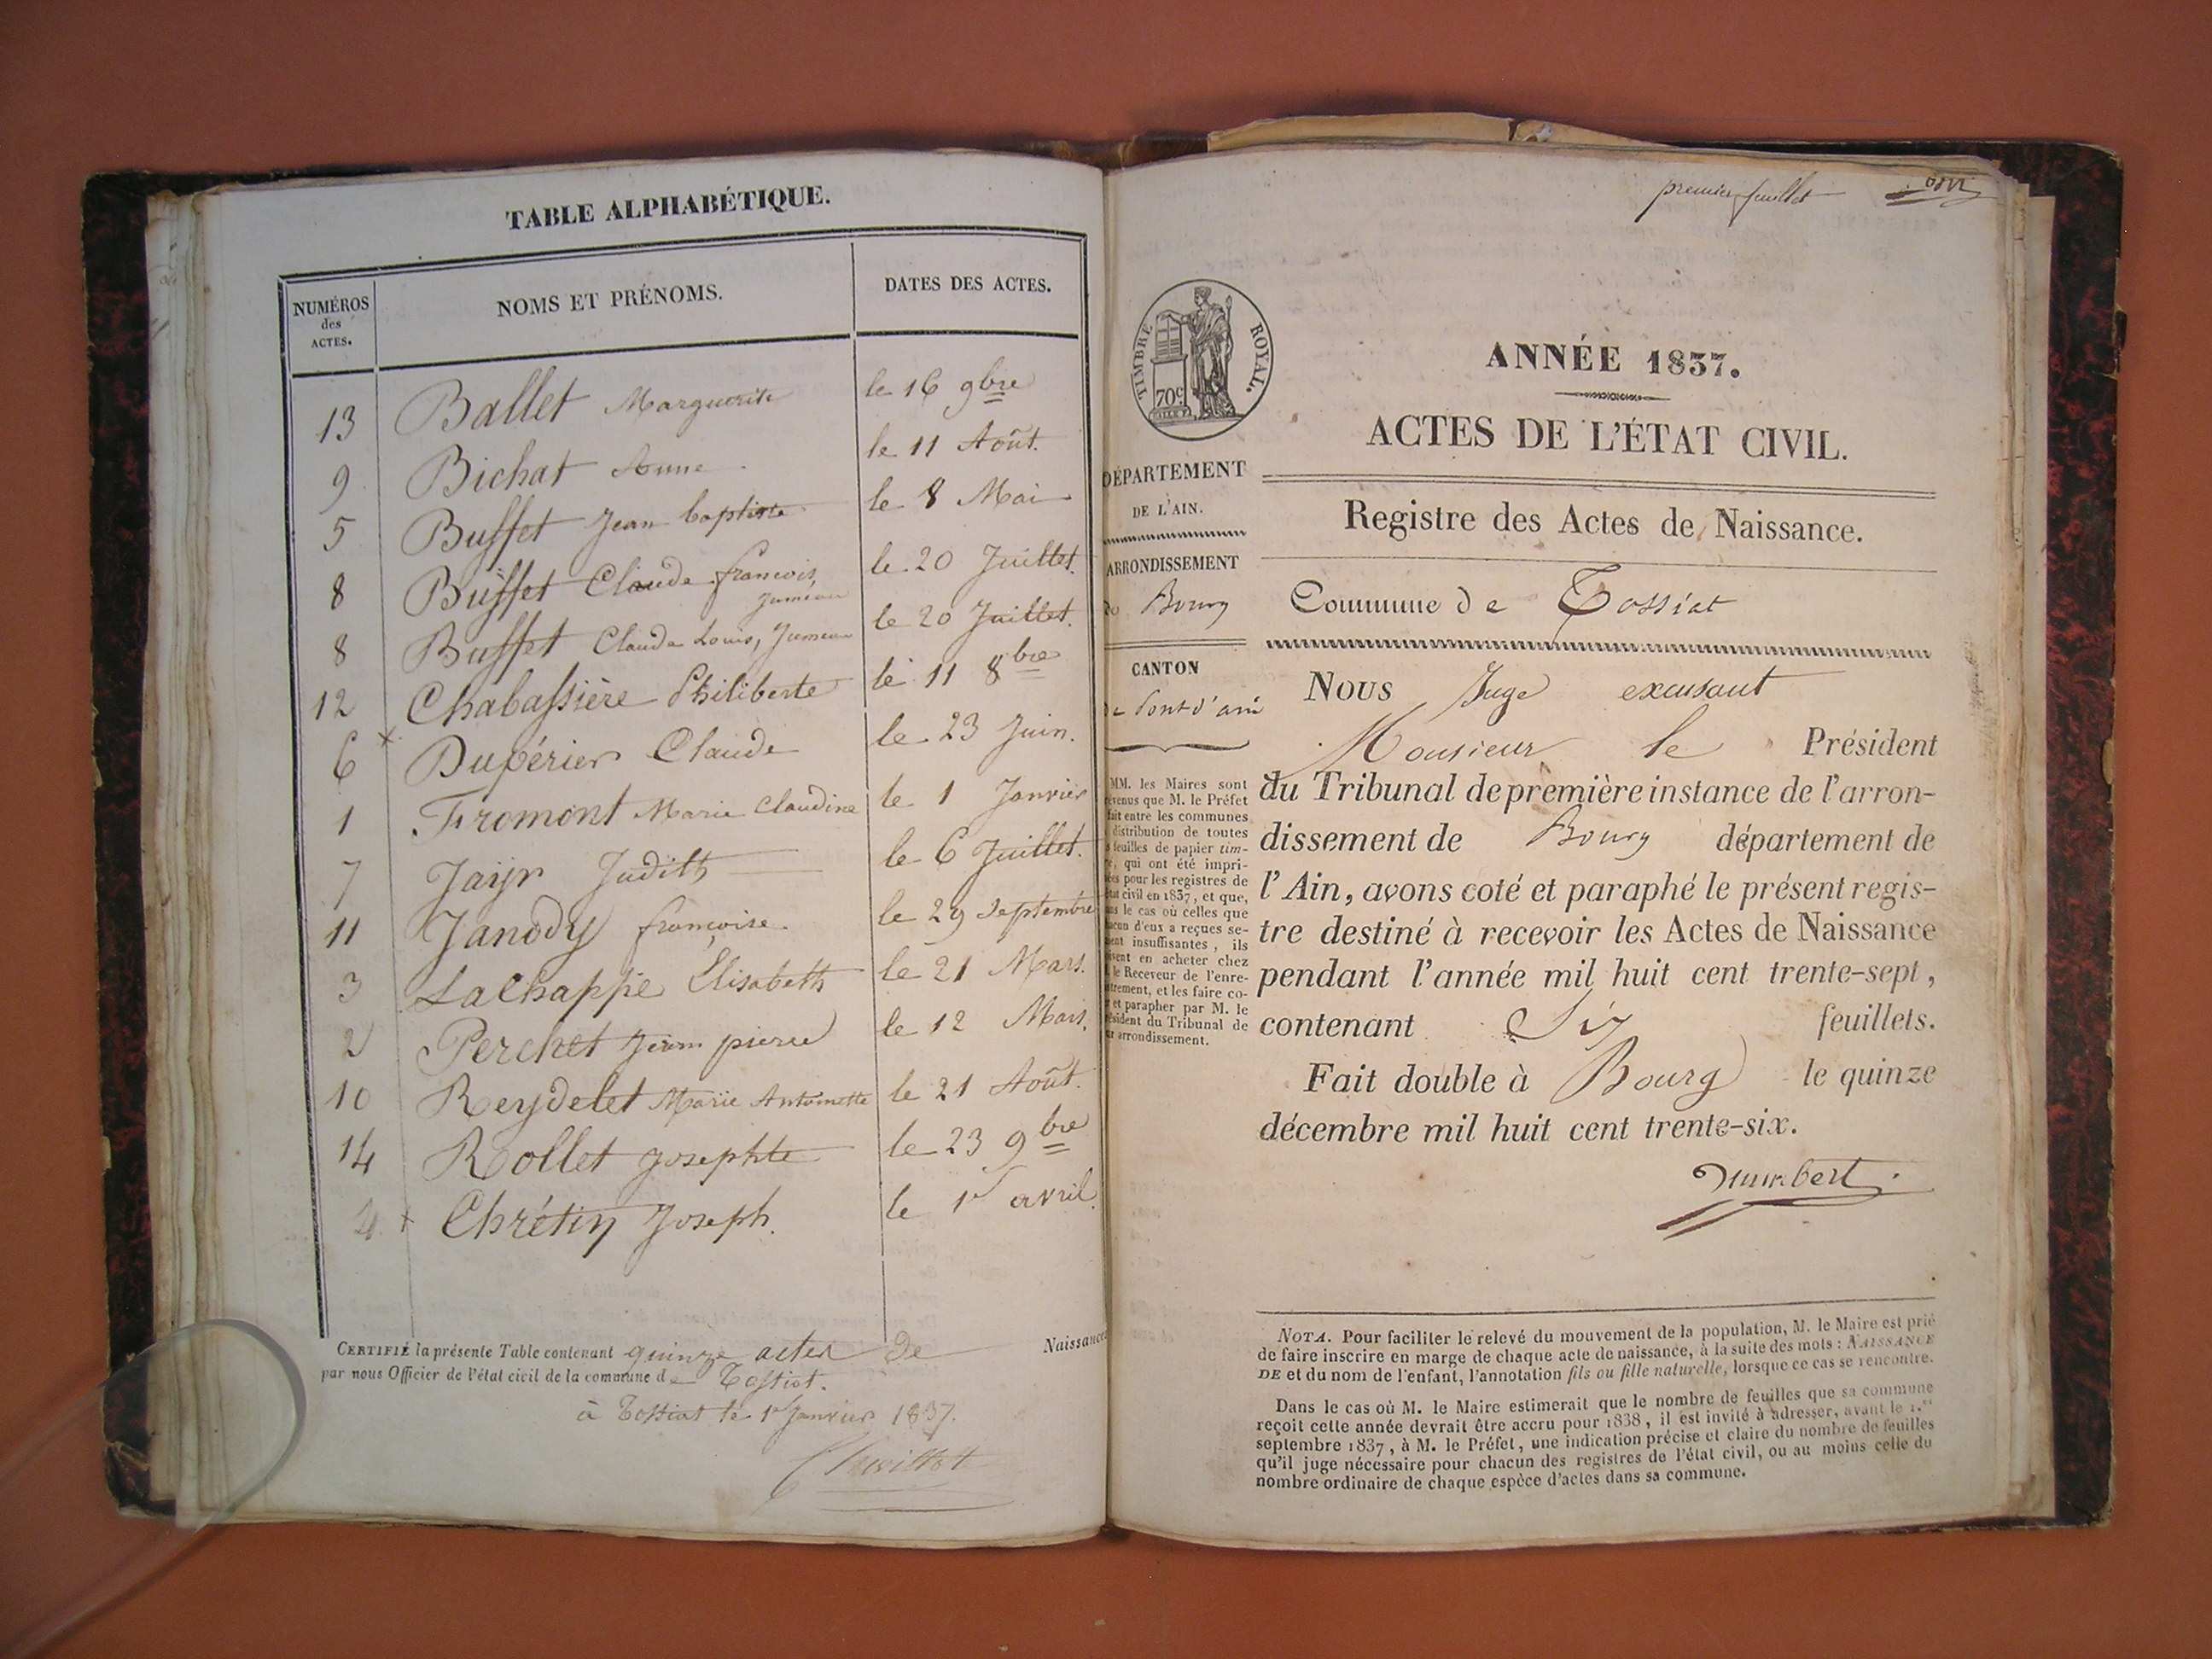 TABLE ALPHABÉTIQUE.
NUMÉROS des ACTES. NOMS ET PRÉNOMS. DATES DES ACTES.
13 Ballet Marguerite le 16 9bre
9 Bichat Anne le 11 Août.
5 Buffet Jean baptiste le 8 Mai
8 Buffet Claude françois, Jumeau le 20 Juillet.
8 Buffet Claude Louis, Jumeau le 20 Juillet.
12 Chabassière Philiberte le 11 8bre
6 × Dupérier Claude le 23 Juin.
1 Fromont Marie Claudine le 1 Janvier
7 Jayr Judith le 6 Juillet.
11 Janody françoise. le 29 Septembre
3 Lachappe Elisabeth le 21 Mars.
2 Perchet Jean pierre le 12 Mars.
10 Reydelet Marie Antoinette le 21 Août.
14 Rollet Josephte le 23 9bre
4 × Chrétin Joseph. le 1r avril.
CERTIFIÉ la présente Table contenant quinze actes de Naissance
par nous Officier de l'état civil de la commune de Tossiat.
à Tossiat le 1r Janvier 1837.
premier feuillet
TIMBRE ROYAL.
70c
ANNÉE 1837.
ACTES DE L'ÉTAT CIVIL.
DÉPARTEMENT
DE L'AIN.
ARRONDISSEMENT
de Bourg
CANTON
de Pont d'ain
MM. les Maires sont
prévenus que M. le Préfet
fait entre les communes
distribution de toutes
s feuilles de papier tim-
é, qui ont été impri-
mées pour les registres de
état civil en 1837, et que,
dans le cas où celles que
chacun d'eux a reçues se-
raient insuffisantes, ils
doivent en acheter chez
le Receveur de l'enre-
gistrement, et les faire co-
ter et parapher par M. le
Président du Tribunal de
leur arrondissement.
Registre des Actes de Naissance.
Commune de Tossiat
NOUS Juge excusant
Monsieur le Président
du Tribunal de première instance de l'arron-
dissement de Bourg département de
l'Ain, avons coté et paraphé le présent regis-
tre destiné à recevoir les Actes de Naissance
pendant l'année mil huit cent trente-sept,
contenant Six feuillets.
Fait double à Bourg le quinze
décembre mil huit cent trente-six.
Humbert
NOTA. Pour faciliter le relevé du mouvement de la population, M. le Maire est prié
de faire inscrire en marge de chaque acte de naissance, à la suite des mots : NAISSANCE
DE et du nom de l'enfant, l'annotation fils ou fille naturelle, lorsque ce cas se rencontre.
Dans le cas où M. le Maire estimerait que le nombre de feuilles que sa commune
reçoit cette année devrait être accru pour 1838, il est invité à adresser, avant le 1.er
septembre 1837, à M. le Préfet, une indication précise et claire du nombre de feuilles
qu'il juge nécessaire pour chacun des registres de l'état civil, ou au moins celle du
nombre ordinaire de chaque espèce d'actes dans sa commune.